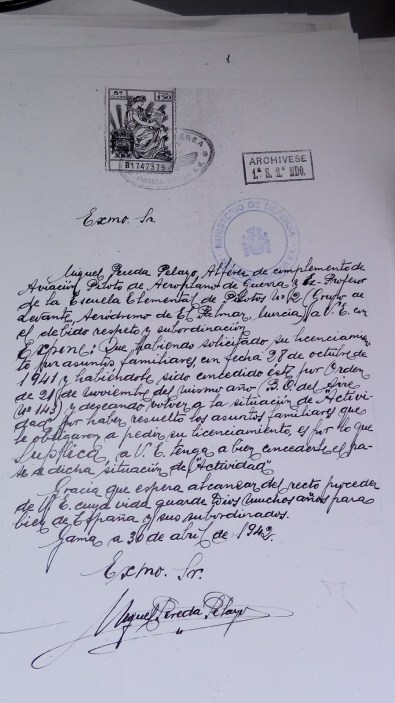 5ª
1'50
B1742379
ARCHIVESE
1.ª S. 2.º MDO.
MINISTERIO DE DEFENSA
Exmo. Sr.
Miguel Pereda Pelayo, Alférez de complemento de
Aviación, Piloto de Aeroplano de Guerra y Ex-Profesor
de la Escuela Elemental de Pilotos nº 2 (Grupo de
Levante, Aeródromo de El Palmar, Murcia) a V.E. con
el debido respeto y subordinación
Expone: Que habiendo solicitado su licenciamien-
to por asuntos familiares, con fecha 28 de octubre de
1941 y habiéndole sido concedido este por Orden
de 21 de noviembre del mismo año (B.O. del Aire
nº 143) y deseando volver a la situación de "Activi-
dad" por haber resuelto los asuntos familiares que
le obligaron a pedir su licenciamiento, es por lo que
Suplica a V.E. tenga a bien concederle el pa-
se a dicha situación de "Actividad"
Gracia que espera alcanzar del recto proceder
de V.E. cuya vida guarde Dios muchos años para
bien de España y sus subordinados.
Gama a 30 de abril de 1942.
Exmo. Sr.
Miguel Pereda Pelayo